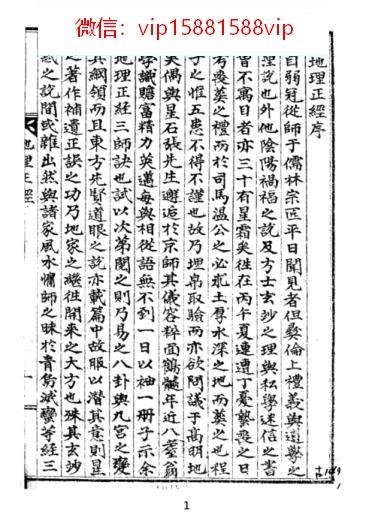 微信：vip15881588vip
地理正經序
自弱冠從師于儒林宗匠平日聞見者但彝倫上禮義與道學之
理說也外他陰陽禍福之說及方士玄玅之理與私學迷信之書
皆不寓目者亦三十有星霜矣徃在丙午夏連遭丁憂喪之日
考喪葬之禮而於司馬溫公之必求土厚水深之地而葬之也程
子之惟五患不得不謹也故乃埋帛取驗而亦欲問議于高明地
矣偶與星石張先生邂逅於宗師其儀容粹面鶴髓年近八耋翁
學識贍富精力英邁每與相從語無不到一日以袖一冊子示余
地理正經三師訣也試以次第閱之則乃易之八卦與九宮之變
其綱領而且東方先賢道眼之說亦載篇中故服以潛其意則星
之著作補遺正誤之功乃地家之繼徃開來之大方也殊其玄玅
惑之說間或雜出然與諸家風水慵師之昧於青烏滅蠻等經三
地理正經
一
1